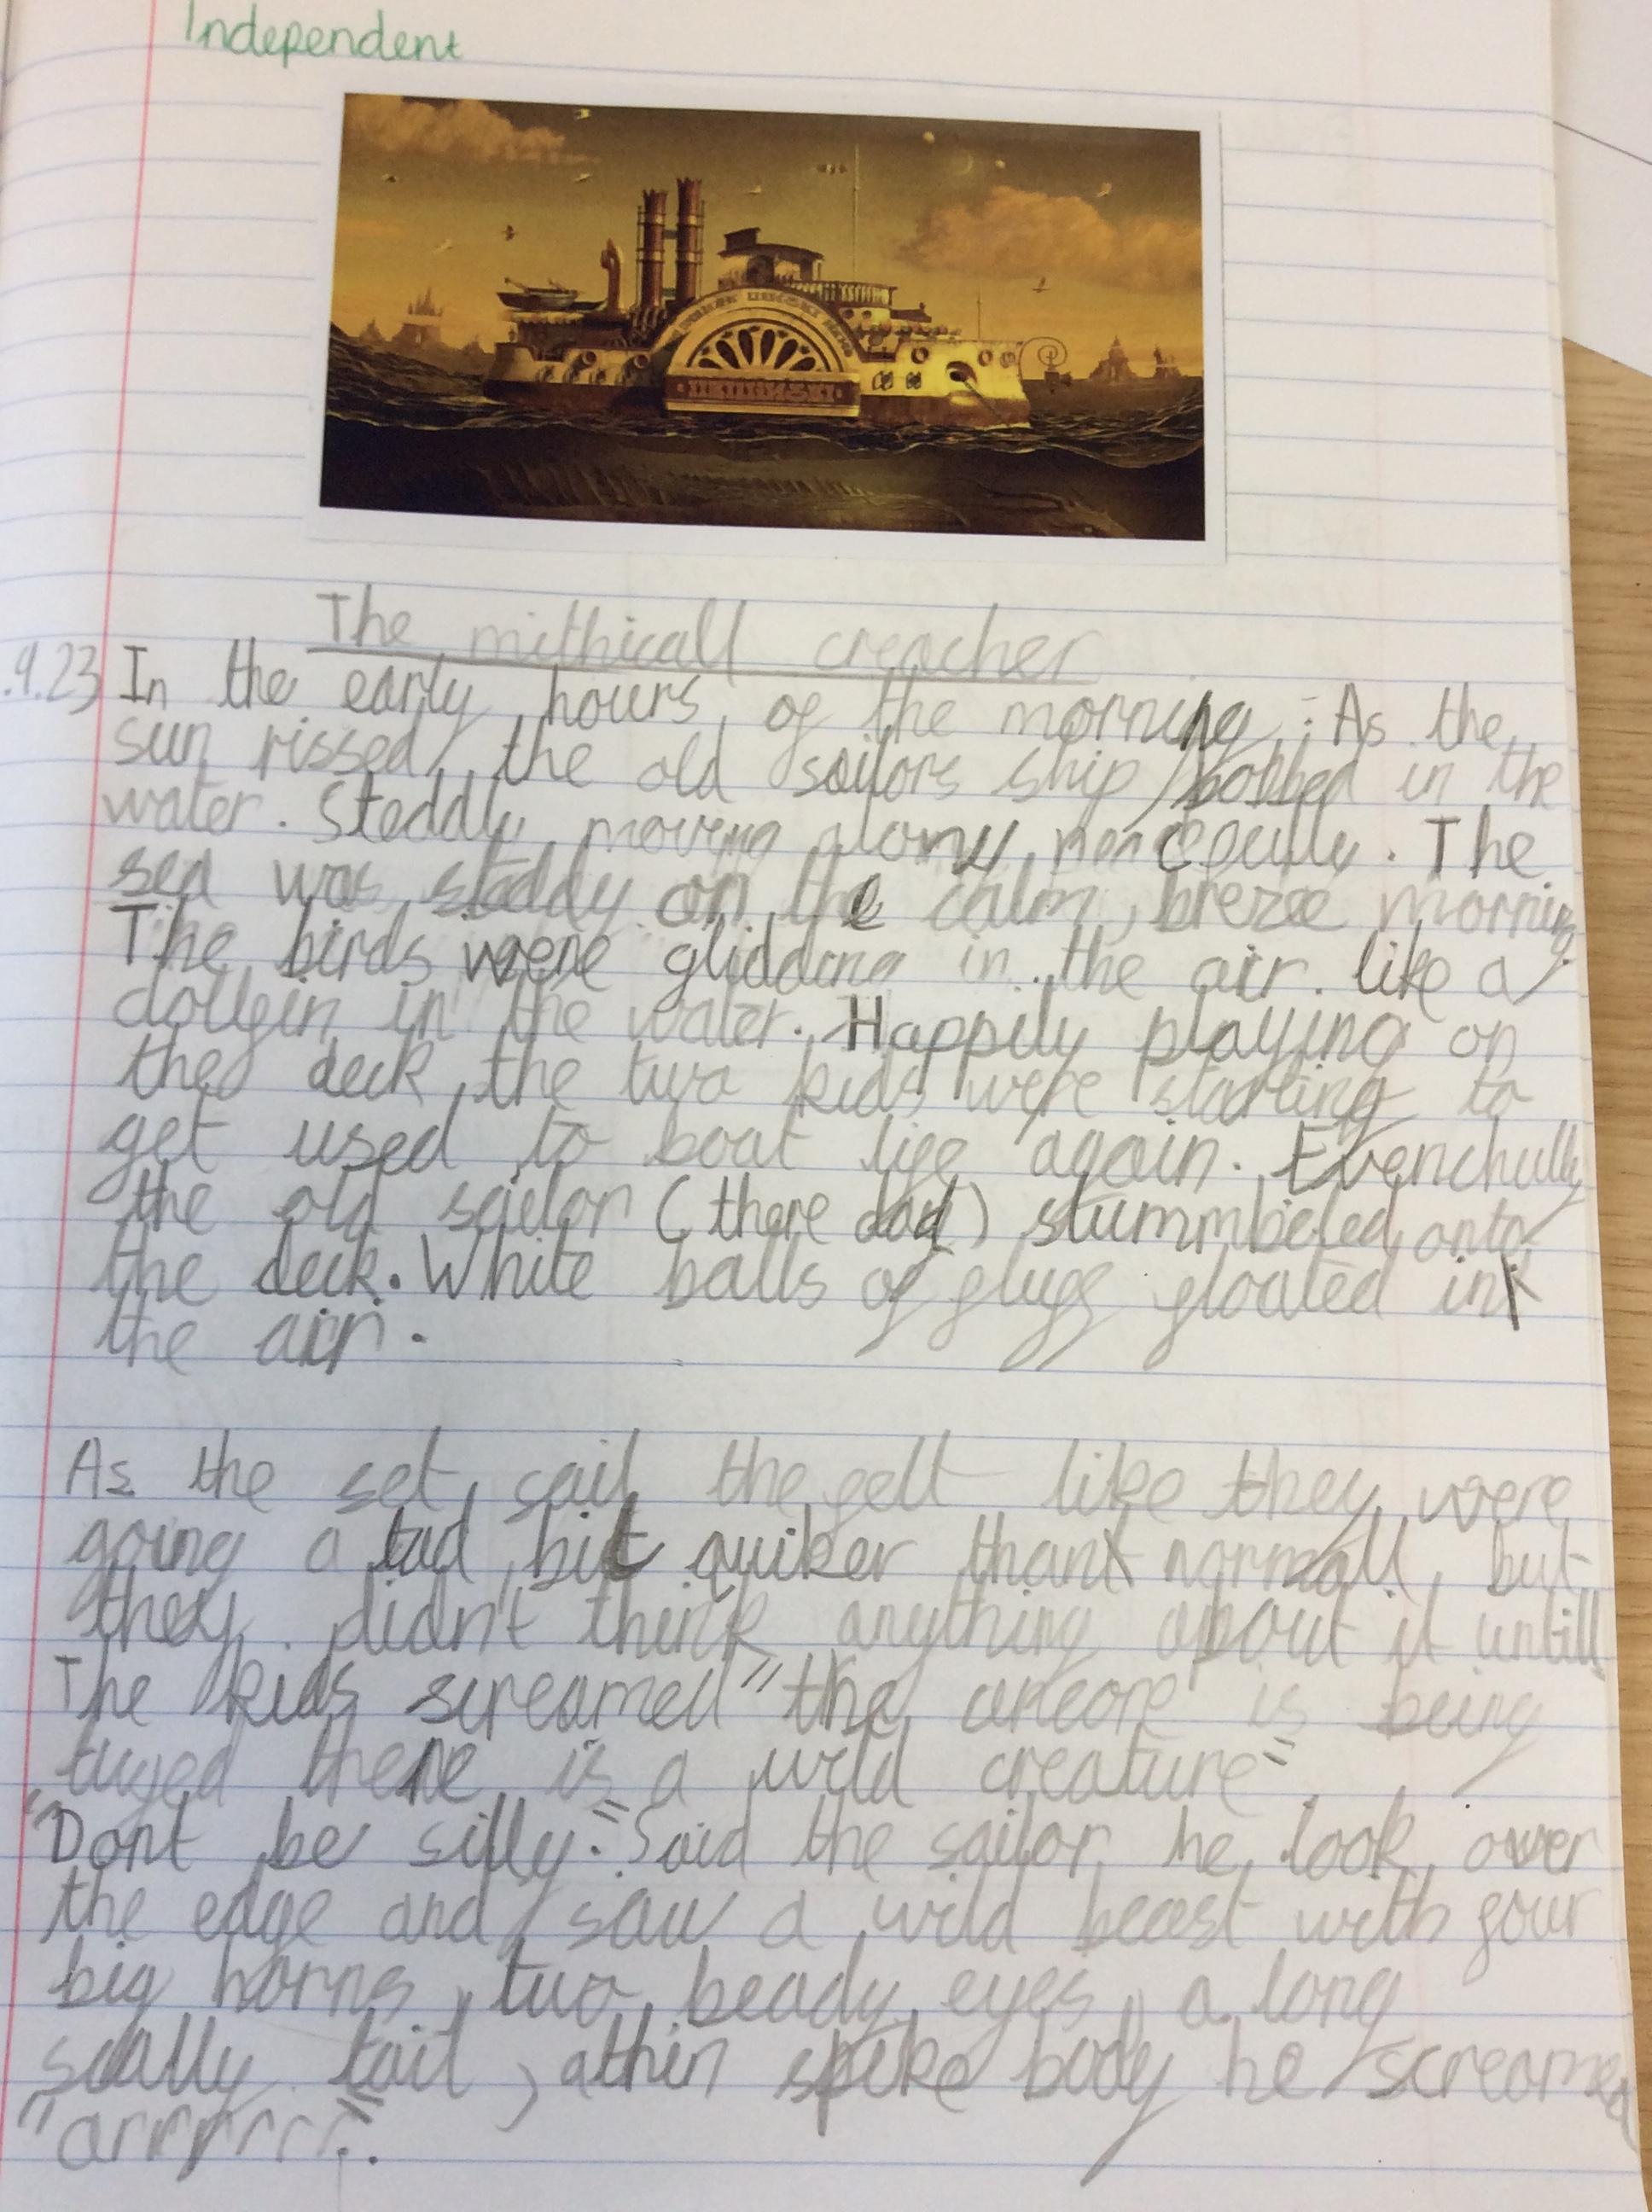 Independent
The mithicall creacher
.9.23 In the early hours of the morning. As the
sun rissed, the old sailors ship bobbed in the
water. Steddly moving along peacefully. The
sea was steddy on the calm, breze morning.
The birds were glidding in the air. like a
dolfin in the water. Happily playing on
the deck, the two kids were starting to
get used to boat life again. Evenchully
the old sailor (there dad) stummbeled onto
the deck. White balls of fluff floated in
the air.
As the set sail the felt like they were
going a tad bit quiker than normall, but
they didn't think anything about it untill
The kids screamed "the ancore is being
tuged there is a wild creature"
"Dont be silly." Said the sailor, he look over
the edge and saw a wild beast with four
big horns, two beady eyes, a long
scally tail, a thin spike body he screamed
"arrrrrrr".